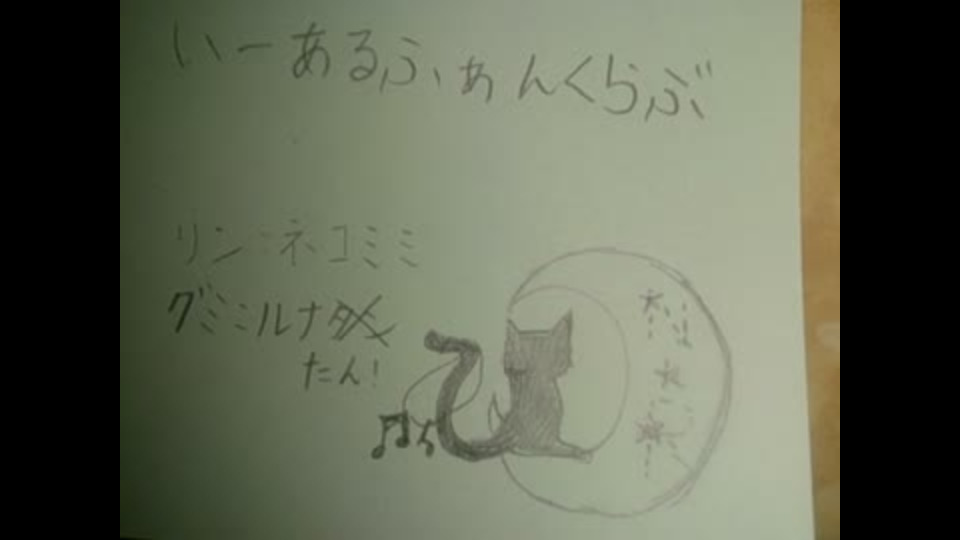 いーあるふぁんくらぶ
リン:ネコミミ
グミ:ルナ
たん!